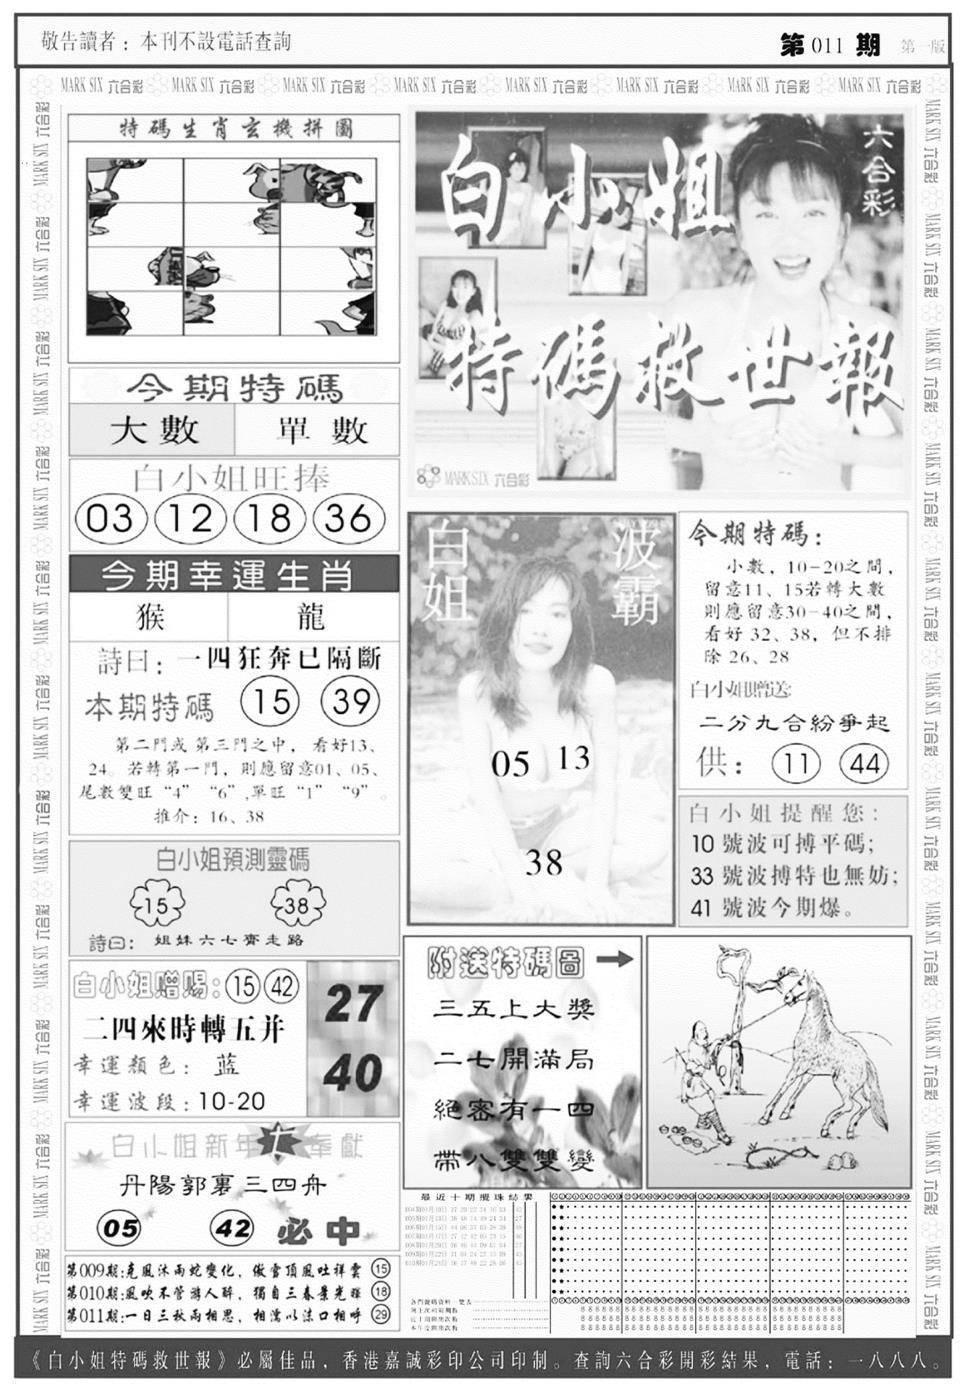 敬告讀者：本刊不設電話查詢
第 011 期 第一版
MARK SIX 六合彩 MARK SIX 六合彩 MARK SIX 六合彩 MARK SIX 六合彩 MARK SIX 六合彩 MARK SIX 六合彩 MARK SIX 六合彩 MARK SIX 六合彩
特碼生肖玄機拼圖
今期特碼
大數 單數
白小姐旺捧
03 12 18 36
今期幸運生肖
猴 龍
詩曰：一四狂奔已隔斷
本期特碼 15 39
第二門或第三門之中，看好13、
24。若轉第一門，則應留意01、05、
尾數雙旺“4”“6”,單旺“1”“9”。
推介：16、38
白小姐預測靈碼
15 38
詩曰：姐妹六七齊走路
白小姐贈賜：15 42
二四來時轉五并
幸運顏色：蓝
幸運波段：10-20
27
40
白小姐新年 奉獻
丹陽郭裏三四舟
05 42 必中
第009期:克風沐雨蛇變化，傲雪頂風吐祥雲 15
第010期:風吹不管游人醉，獨自三春景光輝 18
第011期:一日三秋兩相思，相濡以沫口相呼 29
白小姐
六合彩
特碼救世報
MARK SIX 六合彩
白姐
波霸
05 13
38
今期特碼：
小數，10-20之間，
留意11、15若轉大數
則應留意30-40之間，
看好 32、38，但不排
除 26、28
白小姐贈送:
二分九合紛爭起
供： 11 44
白小姐提醒您：
10 號波可搏平碼；
33 號波搏特也無妨；
41 號波今期爆。
附送特碼圖
三五上大獎
二七開滿局
絕密有一四
帶八雙雙變
最近十期攪珠結果
《白小姐特碼救世報》必屬佳品，香港嘉誠彩印公司印制。查詢六合彩開彩結果，電話：一八八八。